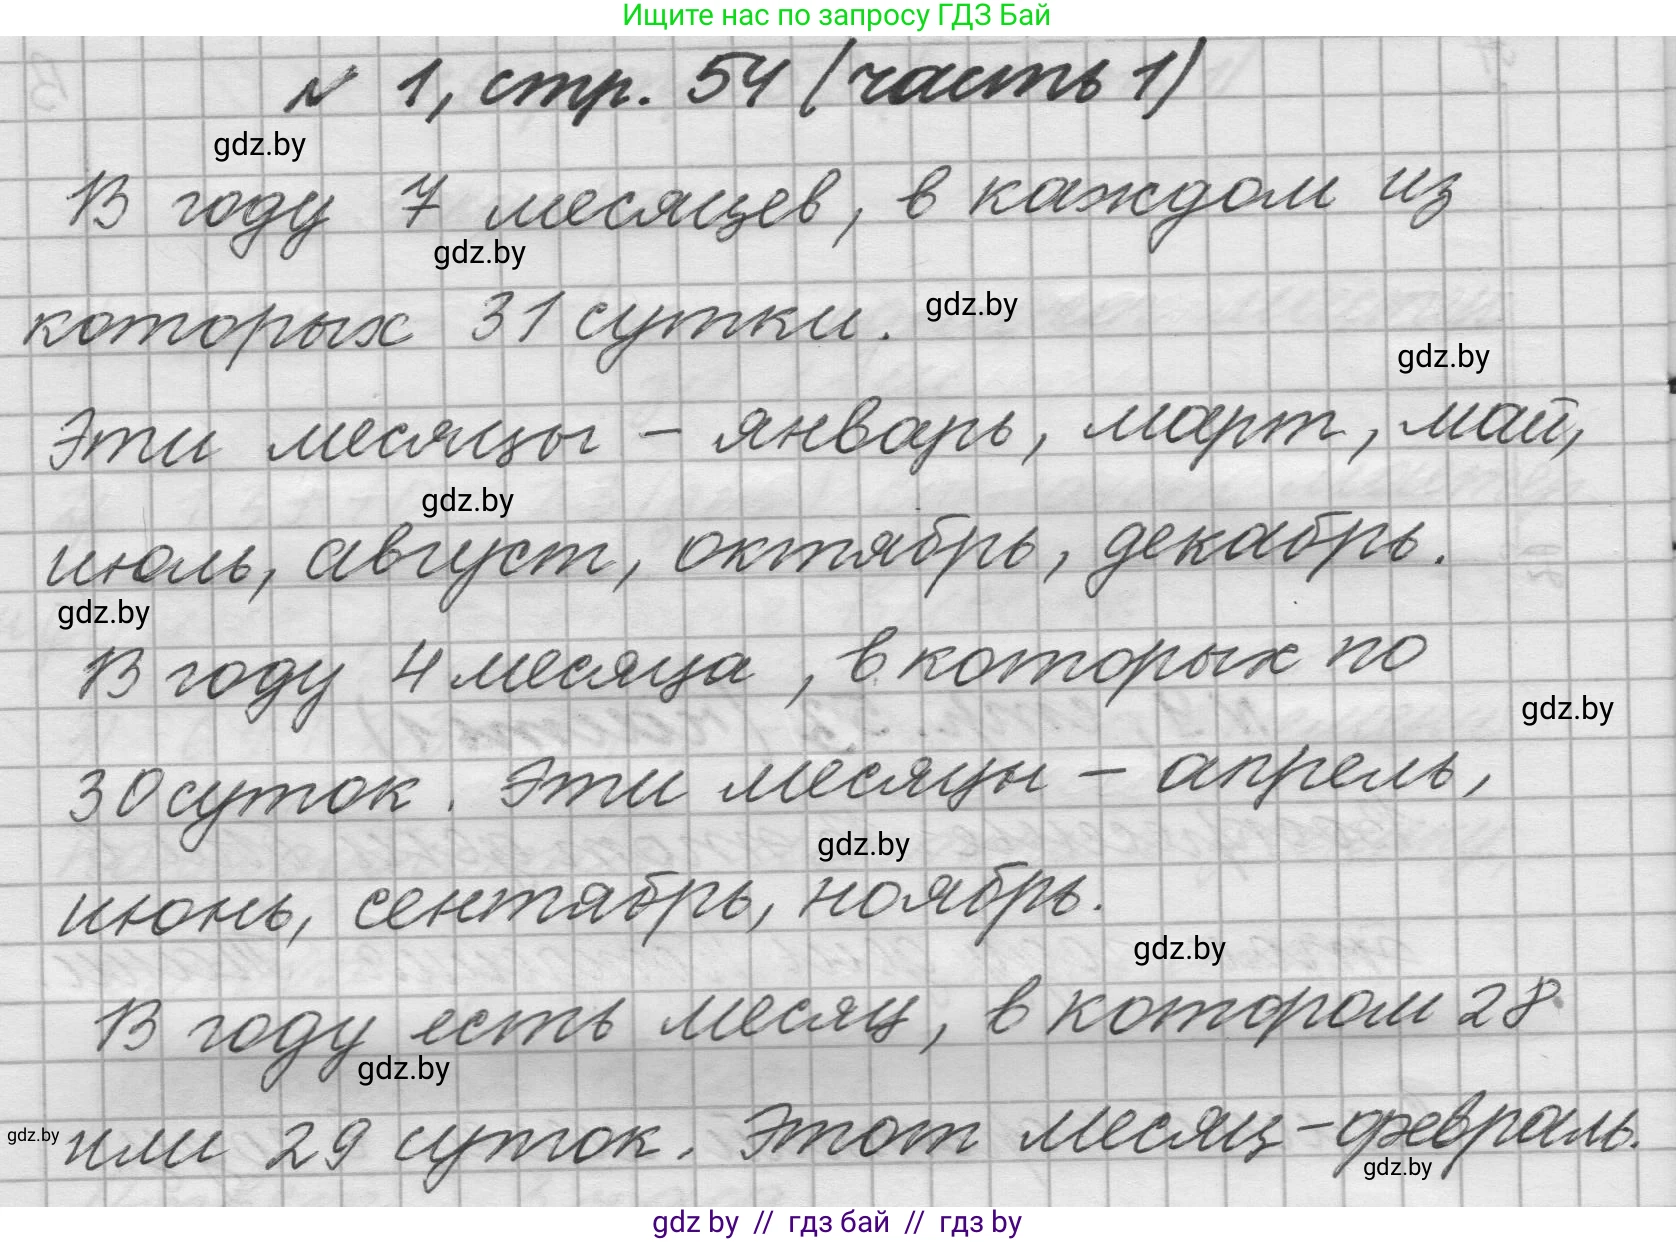 Ищите нас по запросу ГДЗ Бай
№ 1, стр. 54 (часть 1)
gdz.by
В году 7 месяцев, в каждом из
gdz.by
которых 31 сутки.
gdz.by
gdz.by
Эти месяцы – январь, март, май,
gdz.by
июль, август, октябрь, декабрь.
gdz.by
В году 4 месяца, в которых по
gdz.by
30 суток. Эти месяцы – апрель,
gdz.by
июнь, сентябрь, ноябрь.
gdz.by
В году есть месяц, в котором 28
gdz.by
gdz.by
или 29 суток. Этот месяц – февраль.
gdz.by
gdz by // гдз бай // гдз by